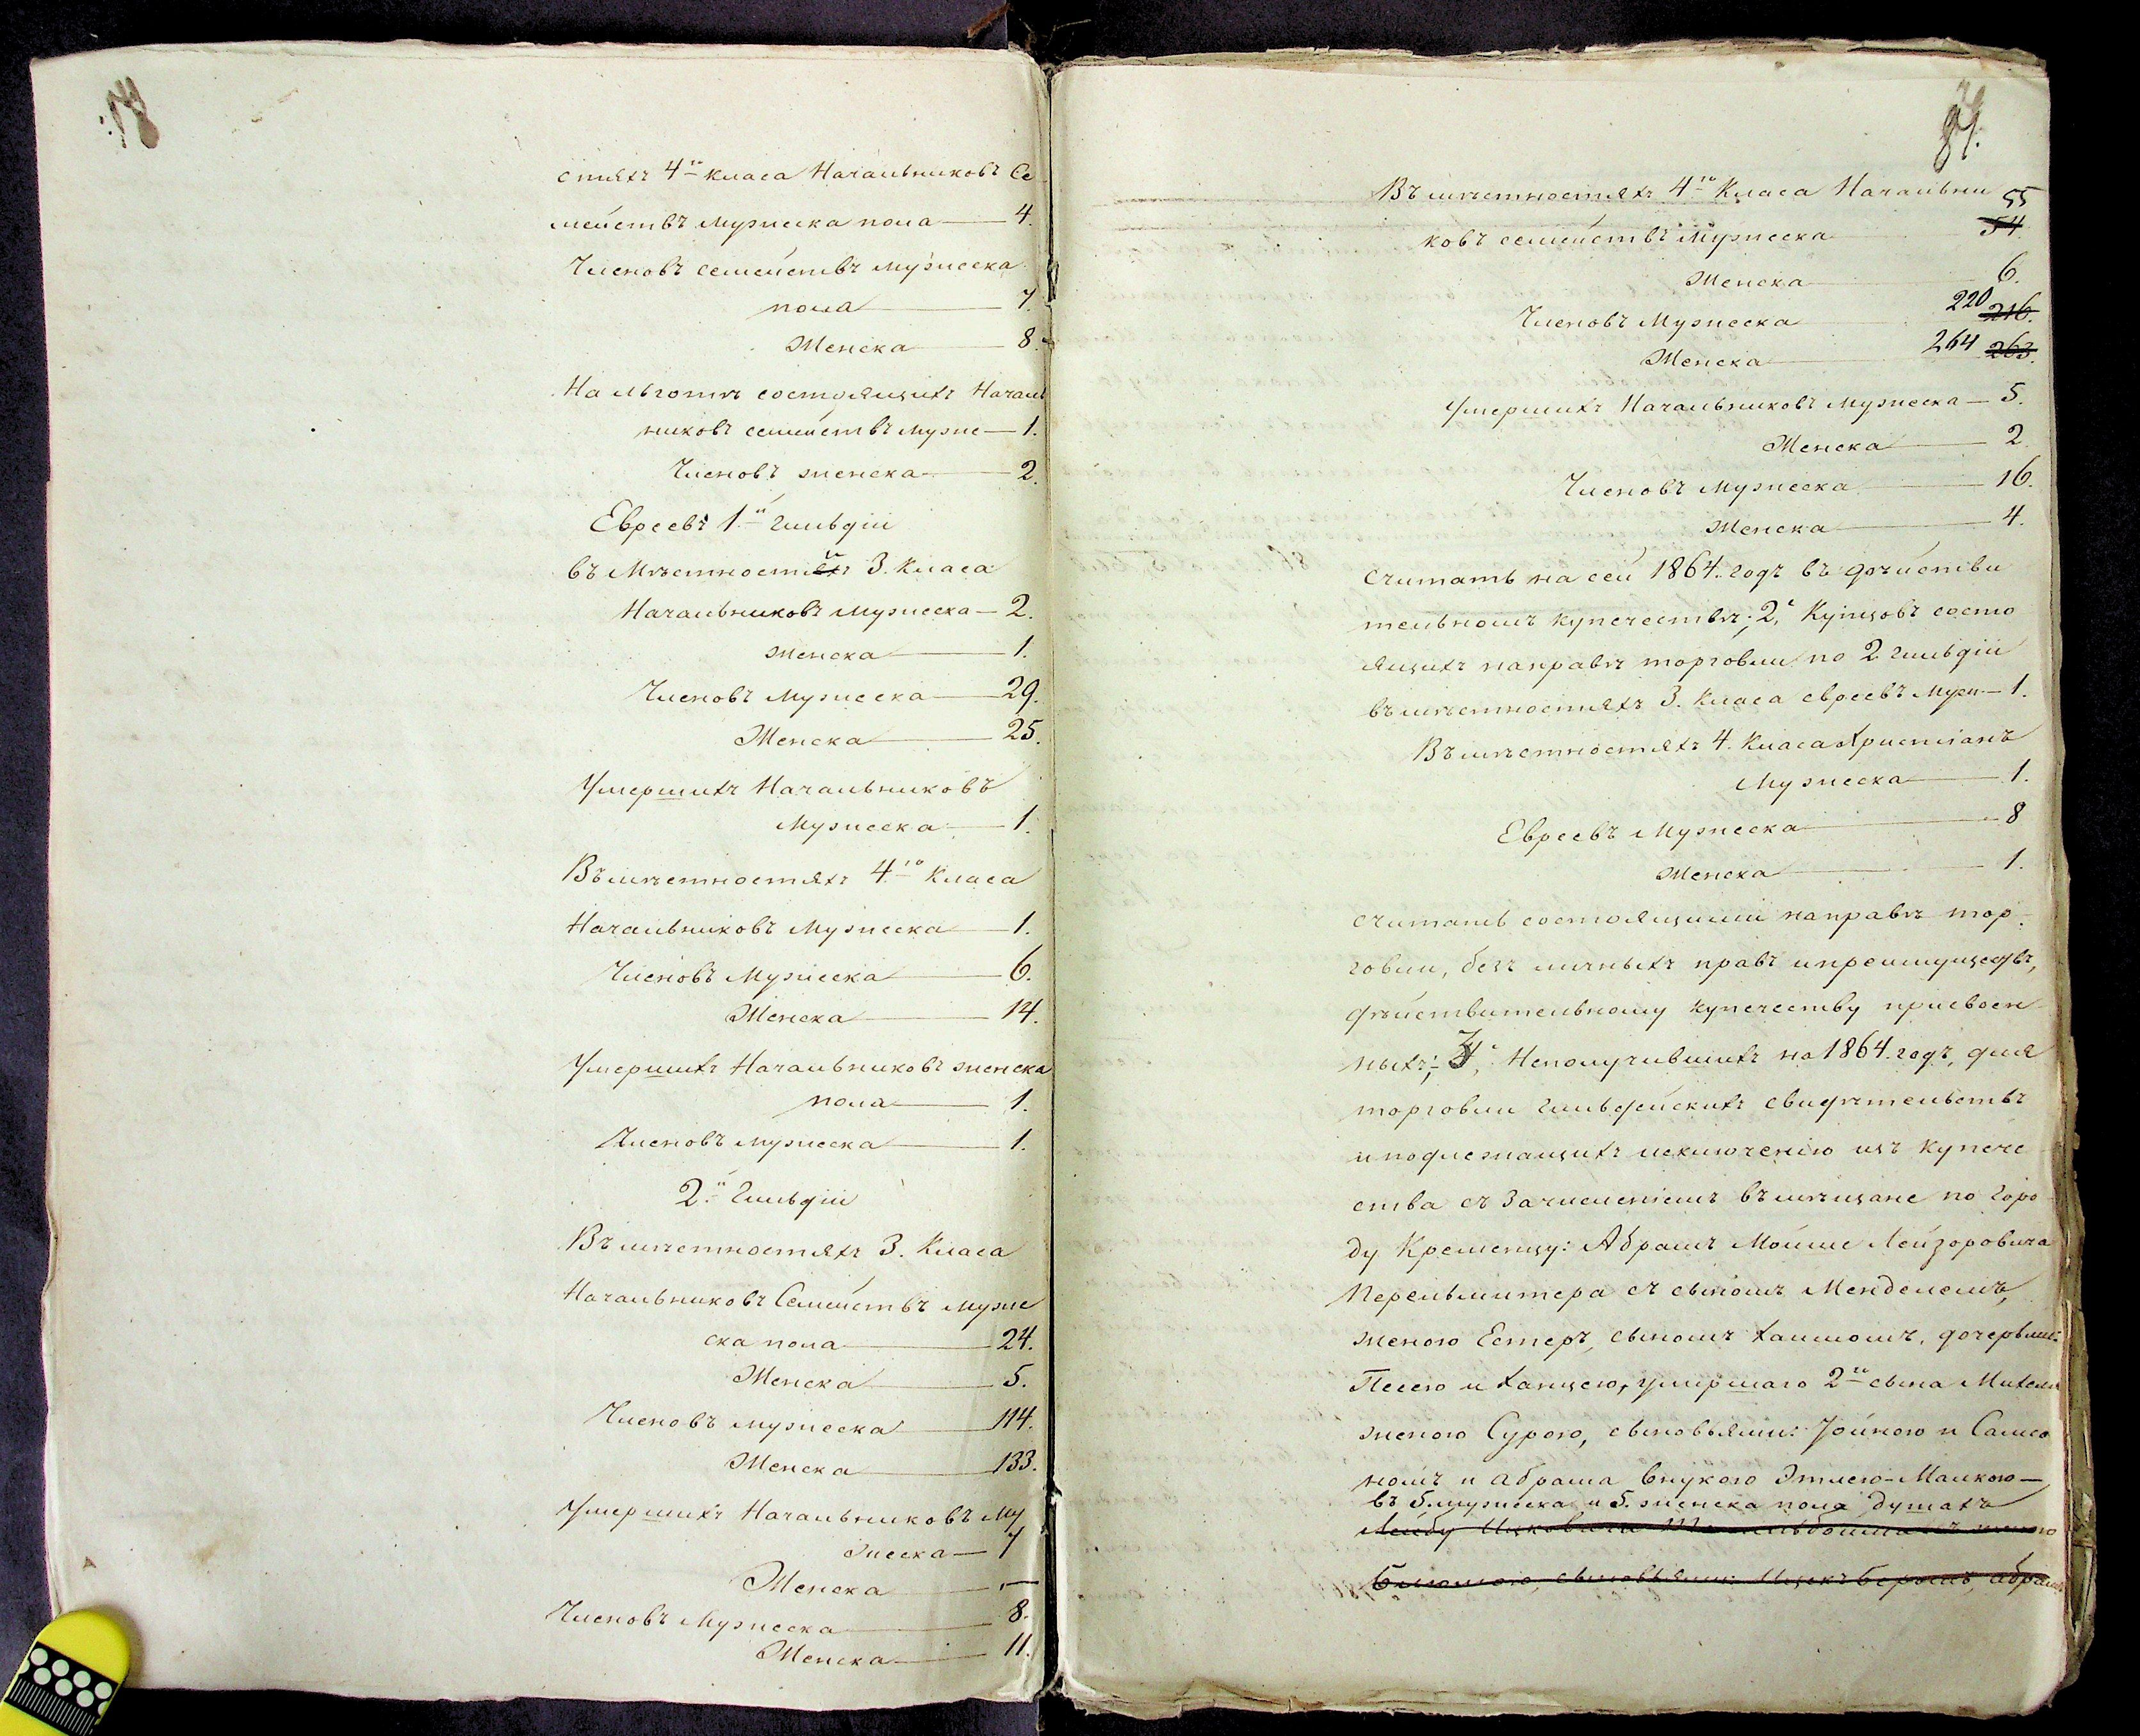 стяхъ 4го класа Начальниковъ Се
мействъ мужеска пола — 4.
Членовъ семействъ мужеска
пола — 7.
Женска — 8.
На льготѣ состоящихъ Началь
никовъ семействъ муже — 1.
Членовъ женска — 2.
Евреевъ 1й гильдіи
въ Мѣстностяхъ 3. Класа
Начальниковъ мужеска — 2.
женска — 1.
Членовъ Мужеска — 29.
Женска — 25.
Умершихъ Начальниковъ
Мужеска — 1.
Въ мѣстностяхъ 4го Класа
Начальниковъ Мужеска — 1.
Членовъ Мужеска — 6.
Женска — 14.
Умершихъ Начальниковъ женска
пола — 1.
Членовъ мужеска — 1.
2й Гильдіи
Въ мѣстностяхъ 3. Класа
Начальниковъ Семействъ муже
ска пола — 24.
Женска — 5.
Членовъ мужеска — 114.
Женска — 133.
Умершихъ Начальниковъ Му
жеска — 7
Женска — —
Членовъ Мужеска — 8.
Женска — 11.
Въ мѣстностяхъ 4го Класа Начальни
55
ковъ семействъ Мужеска 54
Женска 6.
Членовъ Мужеска 220 216.
Женска 264 263.
Умершихъ Начальниковъ мужеска — 5.
Женска — 2
Членовъ мужеска — 16.
Женска — 4.
считать на сей 1864. годъ въ дѣйстви
тельномъ купечествѣ; 2, Купцовъ состо
ящихъ на правѣ торговли по 2 гильдіи
въ мѣстностяхъ 3. Класа евреевъ Муж. — 1.
Въ мѣстностяхъ 4. Класа Христіанъ
Мужеска — 1.
Евреевъ Мужеска — 8
Женска — 1.
считать состоящими на правѣ тор
говли, безъ личныхъ правъ и преимуществъ,
дѣйствительному купечеству присвоен
ныхъ; 3, Неполучившихъ на 1864. годъ, для
торговли Гильдейскихъ свидѣтельствъ
и подлежащихъ исключенію изъ купече
ства съ зачисленіемъ въ мѣщане по Горо
ду Кременцу: Абрамъ Мойше Лейзоровича
Перельмитера съ сыномъ Менделемъ,
женою Естеръ, сыномъ Хаимомъ, дочерьми:
Песею и Ханцею, умершаго 2го сына Михеля
женою Сурою, сыновьями: Іойною и Самсо
номъ и Абрама внукою Этлею-Малкою —
въ 5. мужеска и 5. женска пола душахъ
Лейбу Ицковича женою
сыновьями: Ицекъ Беромъ, Абрам